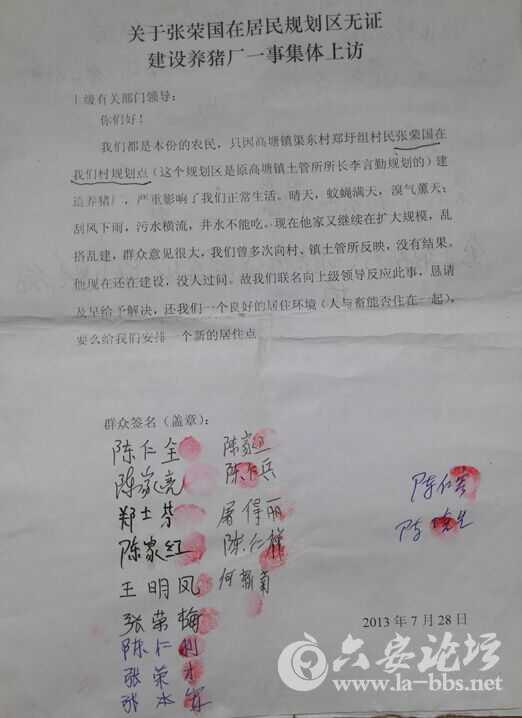 关于张荣国在居民规划区无证
建设养猪厂一事集体上访
上级有关部门领导：
你们好！
我们都是本份的农民，只因高塘镇渠东村郑圩组村民张荣国在
我们村规划点（这个规划区是原高塘镇土管所所长李言勤规划的）建
造养猪厂，严重影响了我们正常生活。晴天，蚊蝇满天，溴气薰天；
刮风下雨，污水横流，井水不能吃。现在他家又继续在扩大规模，乱
搭乱建，群众意见很大，我们曾多次向村、镇土管所反映，没有结果。
他现在还在建设，没人过问。故我们联名向上级领导反应此事，恳请
及早给予解决，还我们一个良好的居住环境（人与畜能否住在一起），
要么给我们安排一个新的居住点
群众签名（盖章）：
陈仁全 陈家
陈家亮 陈 兵
郑士芬 屠得丽
陈家红 陈仁
王明凤 何 菊
张荣梅
陈仁利
张荣才
张水
陈仁
陈
2013年7月28日
六安论坛
www.la-bbs.net